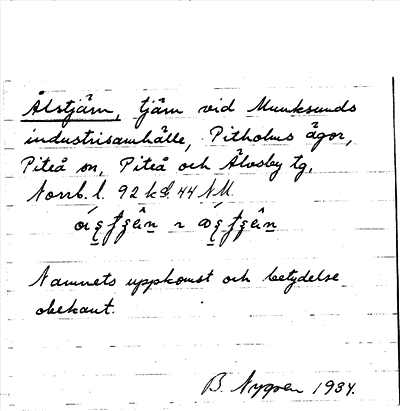 Ålstjärn, tjärn vid Munksunds
industrisamhälle, Pitholms ägor,
Piteå sn, Piteå och Älvsby tg,
Norrb. l. 92 44
Namnets uppkomst och betydelse
obekant.
B. Nygren 1934.